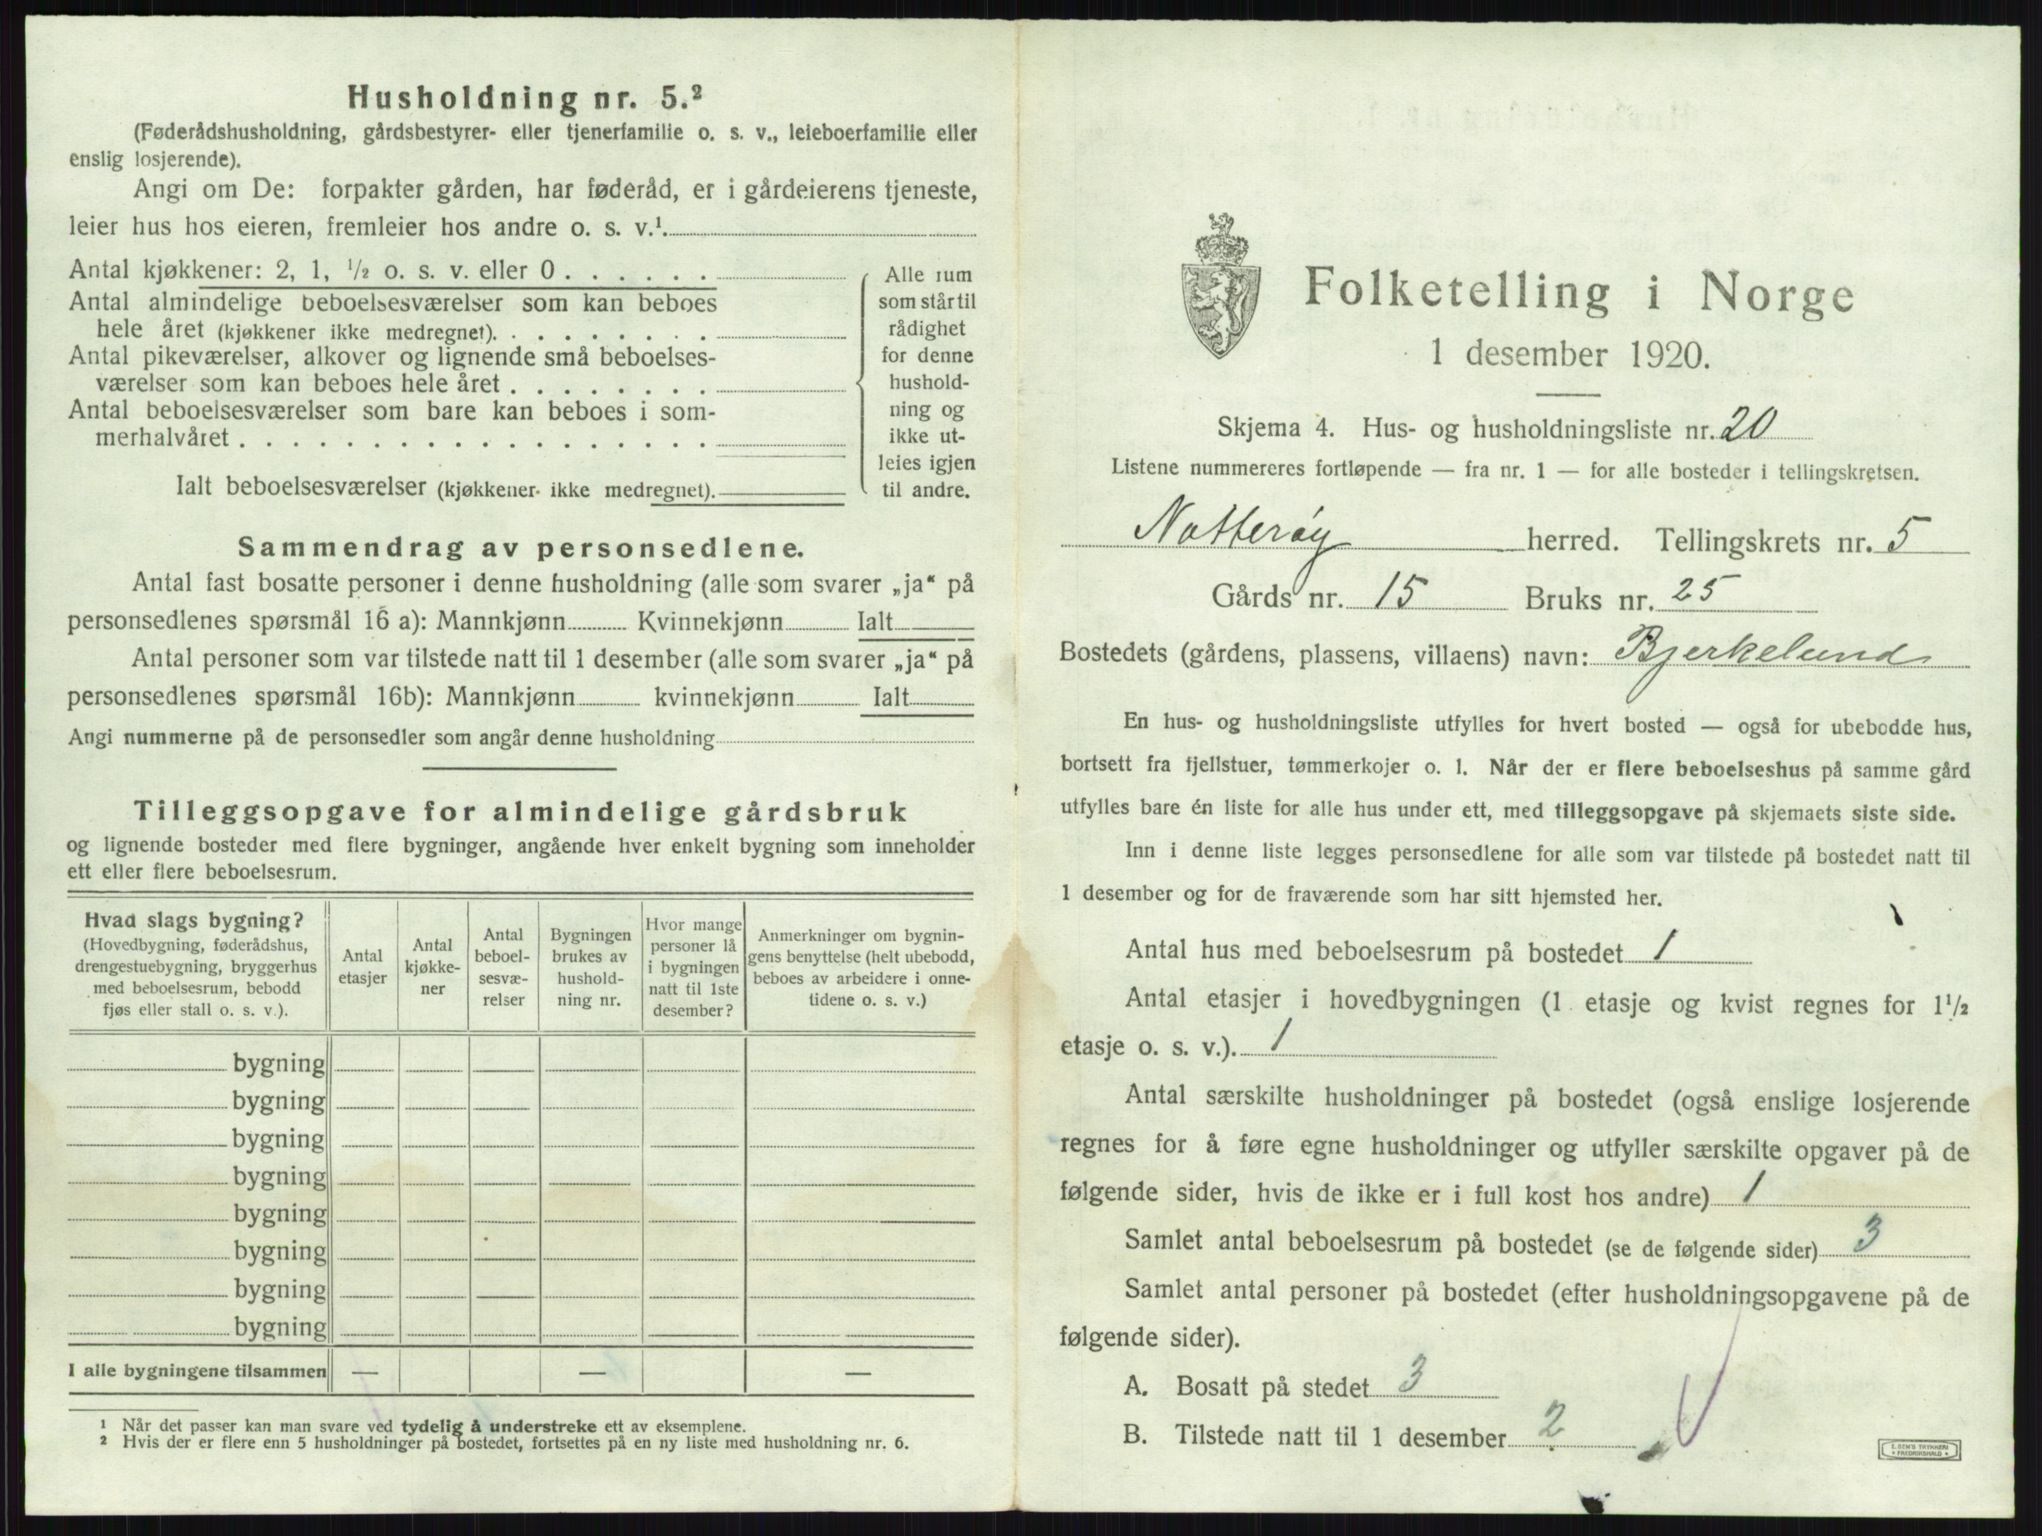 Husholdning nr. 5.²
(Føderådshusholdning, gårdsbestyrer- eller tjenerfamilie o. s. v., leieboerfamilie eller
enslig losjerende).
Angi om De: forpakter gården, har føderåd, er i gårdeierens tjeneste,
leier hus hos eieren, fremleier hos andre o. s. v.¹.
Antal kjøkkener: 2, 1, ½ o. s. v. eller 0 . . . . . .
Antal almindelige beboelsesværelser som kan beboes
hele året (kjøkkener ikke medregnet). . . . . . . . .
Antal pikeværelser, alkover og lignende små beboelses-
værelser som kan beboes hele året . . . . . . . .
Antal beboelsesværelser som bare kan beboes i som-
merhalvåret . . . . . . . . . . . . . . . . . .
Ialt beboelsesværelser (kjøkkener ikke medregnet).
Alle rum
som står til
rådighet
for denne
hushold-
ning og
ikke ut-
leies igjen
til andre.
Sammendrag av personsedlene.
Antal fast bosatte personer i denne husholdning (alle som svarer „ja“ på
personsedlenes spørsmål 16 a): Mannkjønn Kvinnekjønn Ialt
Antal personer som var tilstede natt til 1 desember (alle som svarer „ja“ på
personsedlenes spørsmål 16b): Mannkjønn kvinnekjønn Ialt
Angi nummerne på de personsedler som angår denne husholdning
Tilleggsopgave for almindelige gårdsbruk
og lignende bosteder med flere bygninger, angående hver enkelt bygning som inneholder
ett eller flere beboelsesrum.
Hvad slags bygning?
(Hovedbygning, føderådshus,
drengestuebygning, bryggerhus
med beboelsesrum, bebodd
fjøs eller stall o. s. v.).
Antal
etasjer
Antal
kjøkke-
ner
Antal
beboel-
sesvæ-
relser
Bygningen
brukes av
hushold-
ning nr.
Hvor mange
personer lå
i bygningen
natt til 1ste
desember?
Anmerkninger om bygnin-
gens benyttelse (helt ubebodd,
beboes av arbeidere i onne-
tidene o. s. v.)
bygning
bygning
bygning
bygning
bygning
bygning
bygning
bygning
I alle bygningene tilsammen — — —
¹ Når det passer kan man svare ved tydelig å understreke ett av eksemplene.
² Hvis der er flere enn 5 husholdninger på bostedet, fortsettes på en ny liste med husholdning nr. 6.
Folketelling i Norge
1 desember 1920.
Skjema 4. Hus- og husholdningsliste nr. 20
Listene nummereres fortløpende — fra nr. 1 — for alle bosteder i tellingskretsen.
Nøtterøy herred. Tellingskrets nr. 5
Gårds nr. 15 Bruks nr. 25
Bostedets (gårdens, plassens, villaens) navn: Bjerkelund
En hus- og husholdningsliste utfylles for hvert bosted — også for ubebodde hus,
bortsett fra fjellstuer, tømmerkojer o. l. Når der er flere beboelseshus på samme gård
utfylles bare én liste for alle hus under ett, med tilleggsopgave på skjemaets siste side.
Inn i denne liste legges personsedlene for alle som var tilstede på bostedet natt til
1 desember og for de fraværende som har sitt hjemsted her.
Antal hus med beboelsesrum på bostedet 1
Antal etasjer i hovedbygningen (1 etasje og kvist regnes for 1½
etasje o. s. v.). 1
Antal særskilte husholdninger på bostedet (også enslige losjerende
regnes for å føre egne husholdninger og utfyller særskilte opgaver på de
følgende sider, hvis de ikke er i full kost hos andre) 1
Samlet antal beboelsesrum på bostedet (se de følgende sider) 3
Samlet antal personer på bostedet (efter husholdningsopgavene på de
følgende sider).
A. Bosatt på stedet 3
B. Tilstede natt til 1 desember 2